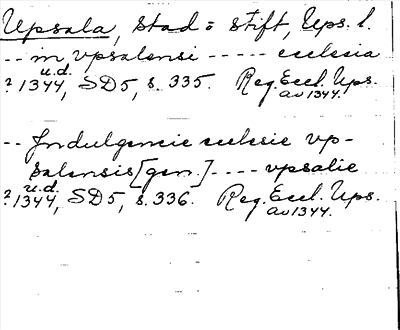 Upsala, Stad o Stift, Ups. l.
-- in vpsalensi ----- ecclesia
u.d.
? 1344, SD5, s. 335. Reg. Eccl. Ups.
av 1344.
-- Indulgencie ecclesie vp-
salensis [gen.] ---- vpsalie
u.d.
? 1344, SD5, s. 336. Reg. Eccl. Ups.
av 1344.